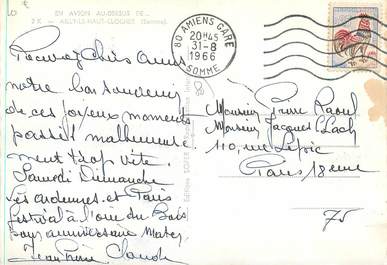 EN AVION AU-DESSUS DE...
2 K - AILLY-LE-HAUT-CLOCHER (Somme)
80 AMIENS GARE
20H45
31-8
1966
SOMME
Chers Amis
notre bon souvenir
de ces joyeux moments
passés malheureuse
ment trop vite.
Samedi Dimanche
Les ardennes. et Paris
Festival à l'orée du Bois
pays anniversaire
Jean Pierre Claude
Monsieur Pierre Raoul
Monsieur Jacques
110, rue Lepic
Paris 18 eme
75